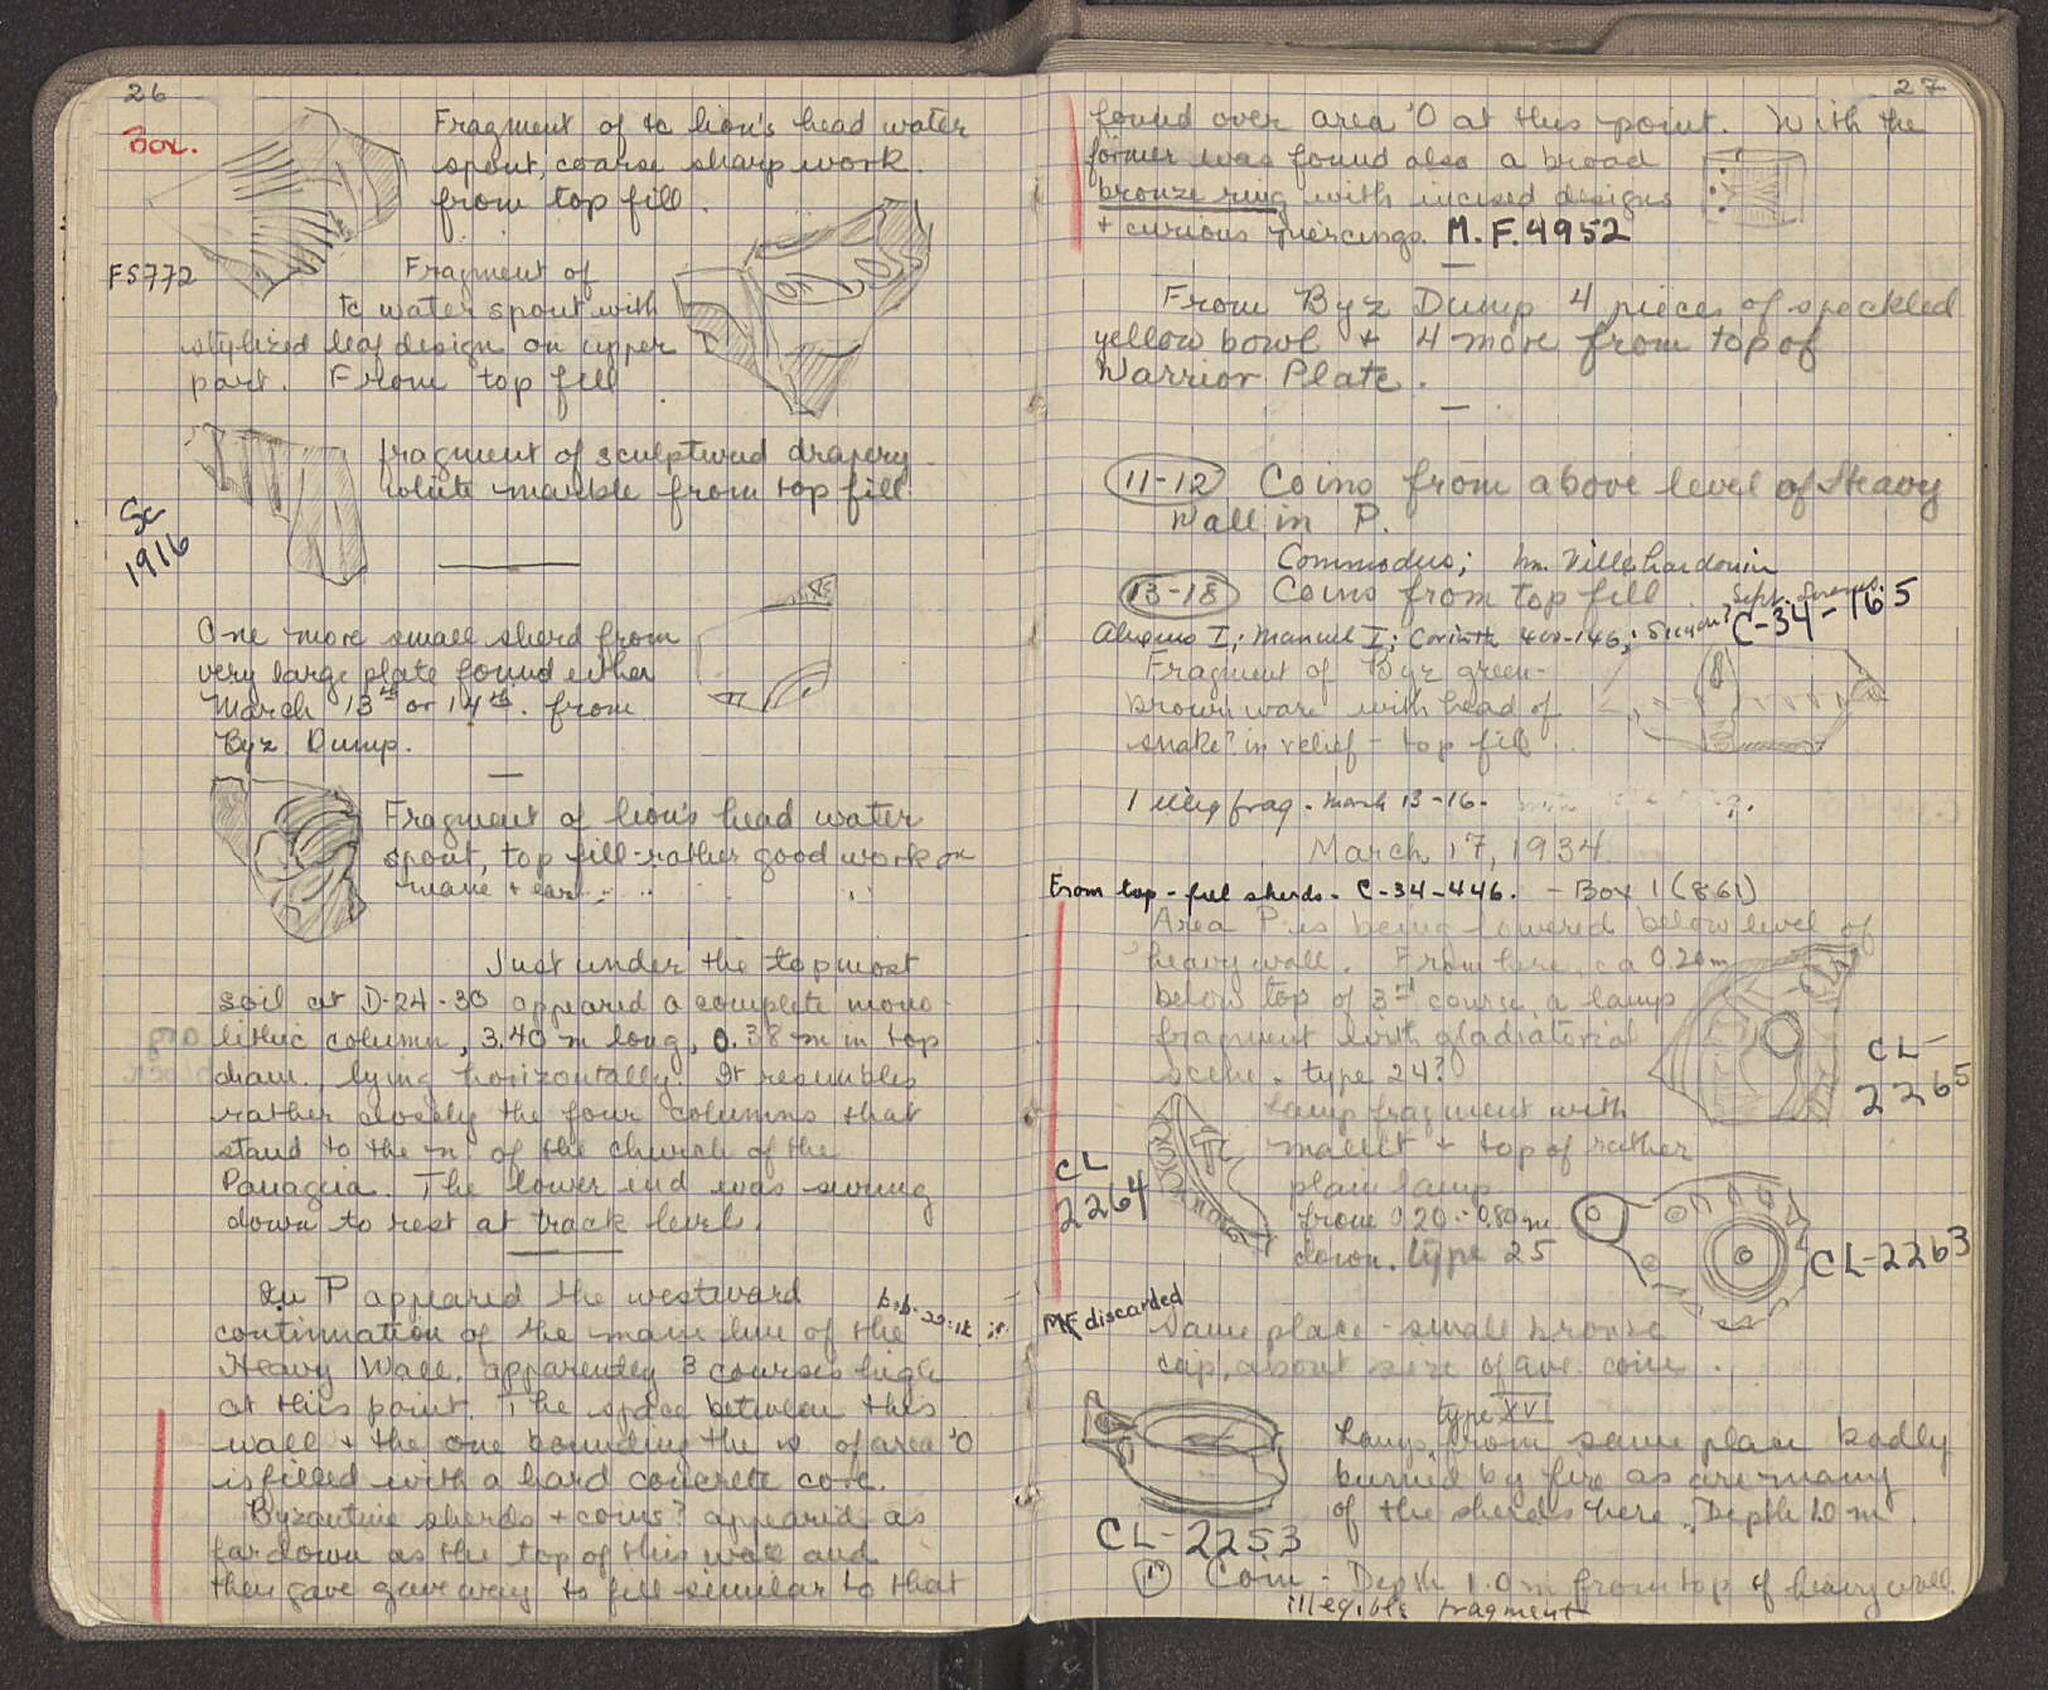 26
Box.
Fragment of tc lion's head water
spout, coarse sharp work.
from top fill.
FS772
Fragment of
tc water spout with
stylized leaf design on upper
part. From top fill
fragment of sculptured drapery
white marble from top fill.
Sc
1916
One more small sherd from
very large plate found either
March 13th or 14th. from
Byz Dump.
Fragment of lion's head water
spout, top fill - rather good work on
mane + ear
Just under the topmost
soil at D-24-30 appeared a complete mono-
lithic column, 3.40 m long, 0.38 m in top
diam., lying horizontally. It resembles
rather closely the four columns that
stand to the n. of the church of the
Panagia. The lower end was swung
down to rest at track level.
In P appeared the westward
continuation of the main line of the
Heavy Wall, apparently 3 courses high
at this point. The space between this
wall + the one bounding the of area 'O
is filled with a hard concrete core.
Byzantine sherds + coins? appeared as
far down as the top of this wall and
then gave gave way to fill similar to that
27
found over area 'O at this point. With the
former was found also a broad
bronze ring with incised designs
+ curious piercings. M.F.4952
From Byz Dump 4 pieces of speckled
yellow bowl + 4 more from top of
Warrior Plate.
11-12 Coins from above level of Heavy
Wall in P.
Commodus; Wm. Villehardouin
13-18 Coins from top fill Sept. Severus.
Alexius I; Manuel I; Corinth 400-146; Sicyon?
C-34-165
Fragment of Byz green-
brown ware with head of
snake? in relief - top fill
1 illeg frag - March 13-16-
March 17, 1934
From top-fill sherds - C-34-446. - Box 1 (861)
Area P is being lowered below level of
heavy wall. From here ca 0.20 m
below top of 3rd course a lamp
fragment with gladiatorial
scene. type 24?
CL-
2265
Lamp fragment with
mallet + top of rather
plain lamp
from 0.20 - 0.80 m
down. type 25
CL
2264
CL-2263
MF discarded
Same place - small bronze
cap, about size of ave. coin.
type XVI
Lamp from same place badly
burned by fire as are many
of the sherds here. Depth 1.0 m
CL-2253
Coin - Depth 1.0 m from top of heavy wall.
illegible fragment